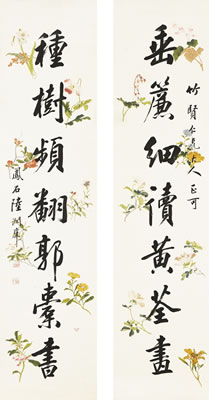 竹賢仁兄大人正可
垂簾細讀黃荃畫
種樹頻翻郭橐書
鳳石陸潤庠